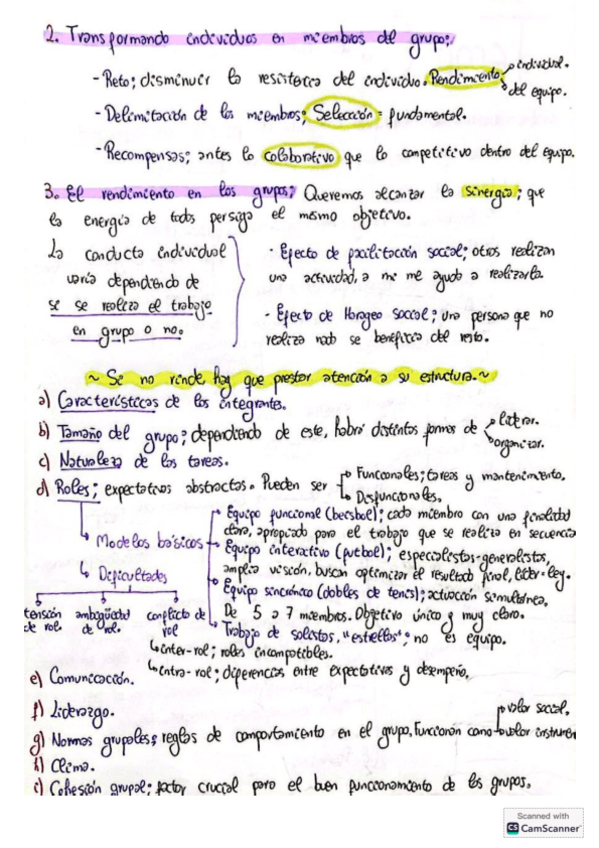 2. Transformando individuos en miembros del grupo;
- Reto; disminuir la resistencia del individuo. Rendimiento individual. del equipo.
- Delimitación de los miembros; Selección = fundamental.
- Recompensas; antes lo colaborativo que lo competitivo dentro del equipo.
3. El rendimiento en los grupos; Queremos alcanzar la sinergia; que
la energía de todos persiga el mismo objetivo.
La conducta individual
varía dependiendo de
si se realiza el trabajo
en grupo o no.
· Efecto de facilitación social; otros realizan
una actividad, a mi me ayuda a realizarla.
· Efecto de Holgazneo Social; una persona que no
realiza nada se beneficia del resto.
~ Si no rinde, hay que prestar atención a su estructura. ~
a) Características de los integrantes.
b) Tamaño del grupo; dependiendo de este, habrá distintas formas de liderar. organizar.
c) Naturaleza de las tareas.
d) Roles; expectativas abstractas. Pueden ser Funcionales; tareas y mantenimiento.
Disfuncionales.
Modelos básicos
Equipo funcional (beisbol); cada miembro con una finalidad
clara, apropiado para el trabajo que se realiza en secuencia
Equipo interactivo (futbol); especialistas-generalistas,
amplia visión, buscan optimizar el resultado final, líder=ley.
Equipo sincrónico (dobles de tenis); actuación simultánea,
De 5 a 7 miembros. Objetivo único y muy claro.
Trabajo de solistas, "estrellas"; no es equipo.
Dificultades
tensión de rol
ambigüedad de rol.
conflicto de rol
inter-rol; roles incompatibles.
intra-rol; diferencias entre expectativas y desempeño.
e) Comunicación.
f) Liderazgo.
g) Normas grupales; reglas de comportamiento en el grupo. Funcionan como valor social. valor instrumen
h) Clima.
i) Cohesión grupal; factor crucial para el buen funcionamiento de los grupos.
Scanned with
CS CamScanner